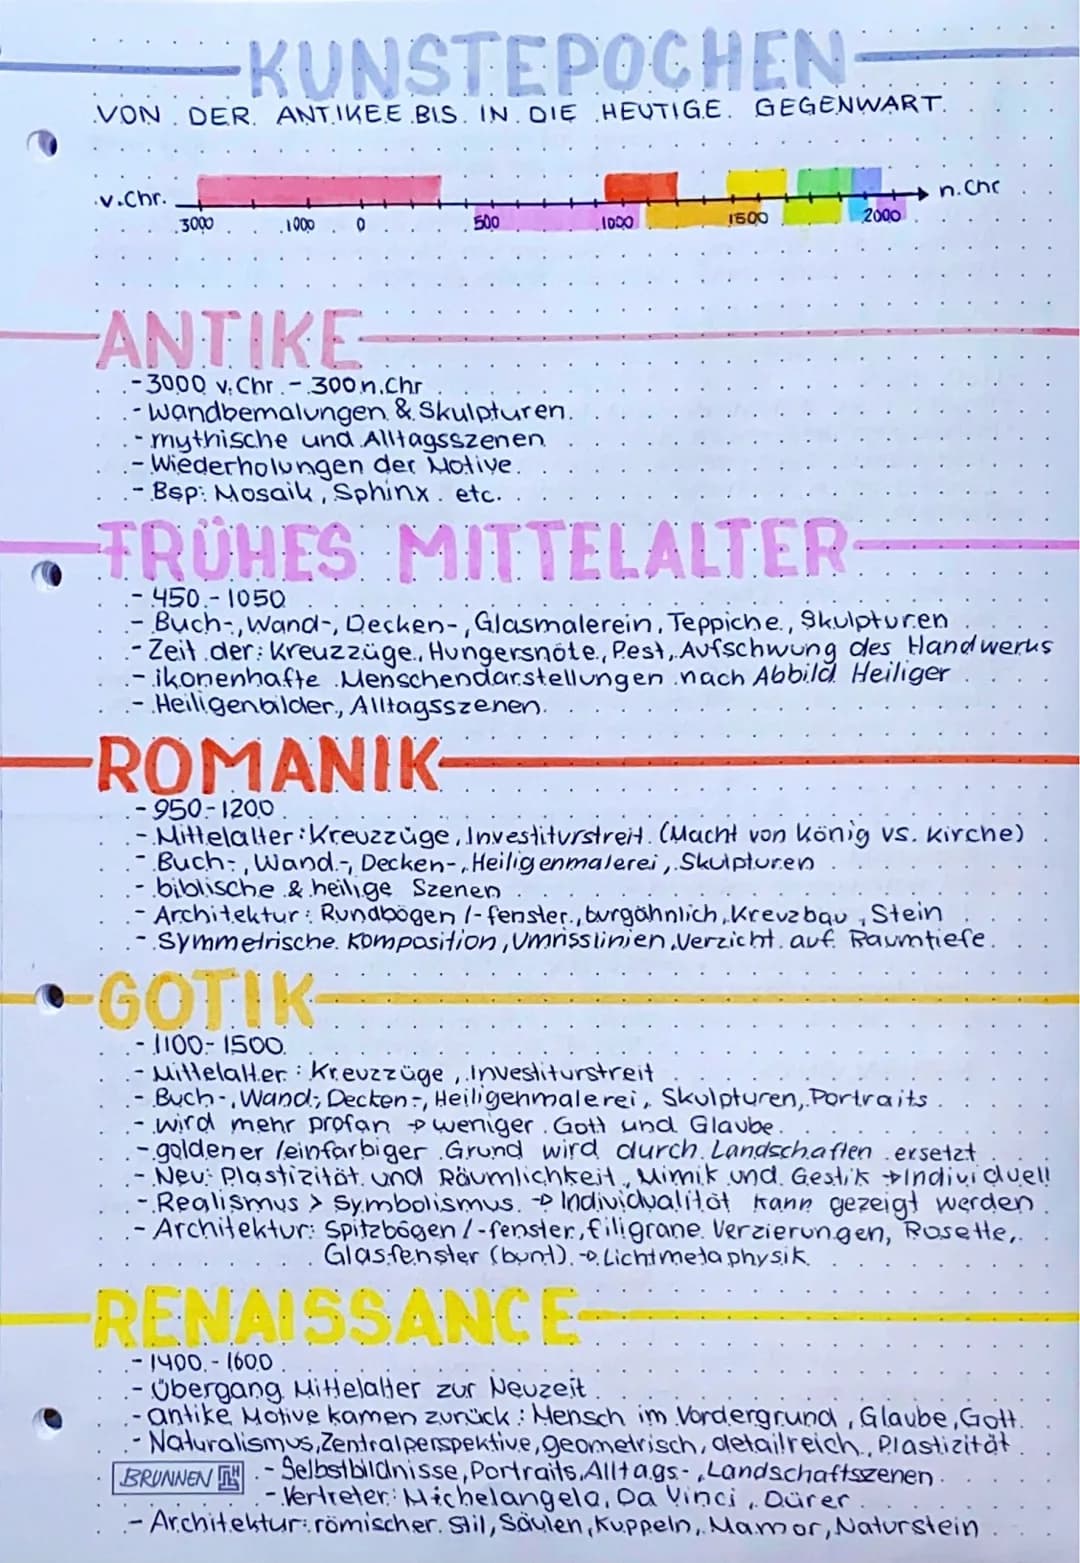 KUNSTEPOCHEN
VON DER ANTIKEE BIS IN DIE HEUTIGE GEGENWART.
v.Chr. n.Chr
3000 1000 0 500 1000 1500 2000
ANTIKE
- 3000 v.Chr. - 300 n.Chr
- Wandbemalungen & Skulpturen.
- mythische und Alltagsszenen
- Wiederholungen der Motive.
- Bsp: Mosaik, Sphinx etc.
FRÜHES MITTELALTER
- 450 - 1050
- Buch-, Wand-, Decken-, Glasmalerein, Teppiche, Skulpturen
- Zeit der: Kreuzzüge, Hungersnöte, Pest, Aufschwung des Handwerks
- ikonenhafte Menschendarstellungen nach Abbild Heiliger
- Heiligenbilder, Alltagsszenen.
ROMANIK
- 950 - 1200
- Mittelalter: Kreuzzüge, Investiturstreit (Macht von König vs. Kirche)
- Buch-, Wand-, Decken-, Heiligenmalerei, Skulpturen
- biblische & heilige Szenen
- Architektur: Rundbögen /-fenster, burgähnlich, Kreuzbau, Stein
- Symmetrische Komposition, Umrisslinien, Verzicht auf Raumtiefe.
GOTIK
- 1100 - 1500
- Mittelalter: Kreuzzüge, Investiturstreit
- Buch-, Wand-, Decken-, Heiligenmalerei, Skulpturen, Portraits
- wird mehr profan → weniger Gott und Glaube.
- goldener /einfarbiger Grund wird durch Landschaften ersetzt
- Neu: Plastizität und Räumlichkeit, Mimik und Gestik → Individuell
- Realismus > Symbolismus. → Individualität kann gezeigt werden
- Architektur: Spitzbögen /-fenster, filigrane Verzierungen, Rosette,
Glasfenster (bunt) → Lichtmetaphysik
RENAISSANCE
- 1400 - 1600
- Übergang Mittelalter zur Neuzeit
- antike Motive kamen zurück: Mensch im Vordergrund, Glaube, Gott.
- Naturalismus, Zentralperspektive, geometrisch, detailreich, Plastizität
BRUNNEN - Selbstbildnisse, Portraits, Alltags-, Landschaftsszenen
- Vertreter: Michelangelo, Da Vinci, Dürer
- Architektur: römischer Stil, Säulen, Kuppeln, Mamor, Naturstein